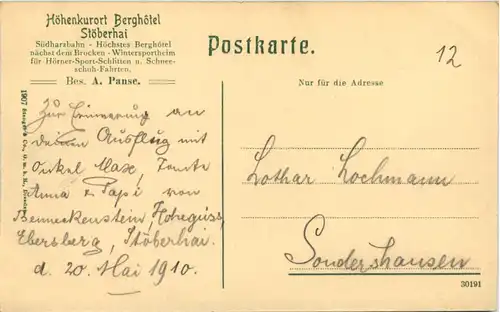 Höhenkurort Berghôtel
Stöberhai
Südharzbahn - Höchstes Berghôtel
nächst dem Brocken - Wintersportheim
für Hörner-Sport-Schlitten u. Schnee-
schuh-Fahrten.
Bes. A. Panse.
Postkarte.
12
Nur für die Adresse
Zur Erinnerung an
deinen Ausflug mit
Onkel Max, Tante
Anna & Papi von
Benneckenstein, Hohegeiss,
Ebersberg, Stöberhai.
d. 20. Mai 1910.
Lothar Lochmann
Sondershausen
30191
1907